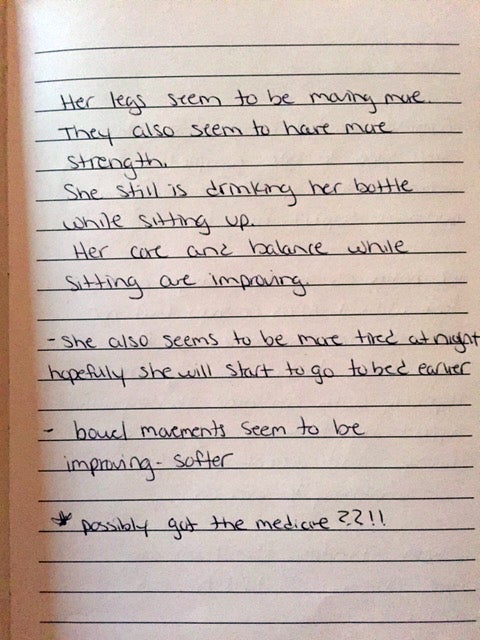 Her legs seem to be moving more.
They also seem to have more
strength.
She still is drinking her bottle
while sitting up.
Her core and balance while
sitting are improving.
- She also seems to be more tired at night
hopefully she will start to go to bed earlier
- bowel movements seem to be
improving - softer
* possibly got the medicine ??!!